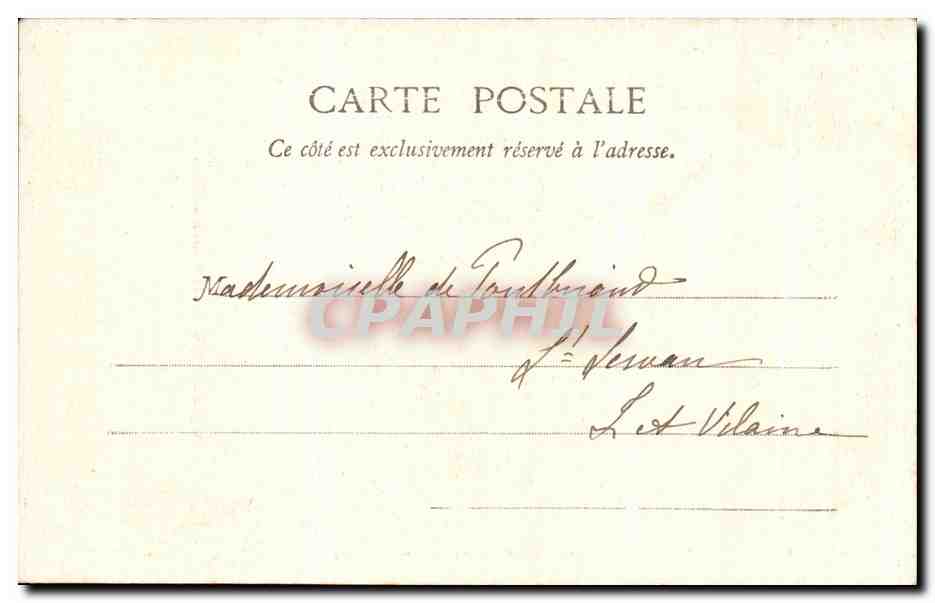 CARTE POSTALE
Ce côté est exclusivement réservé à l'adresse.
Mademoiselle de Pontbriand
CPAPHIL
St Servan
I et Vilaine